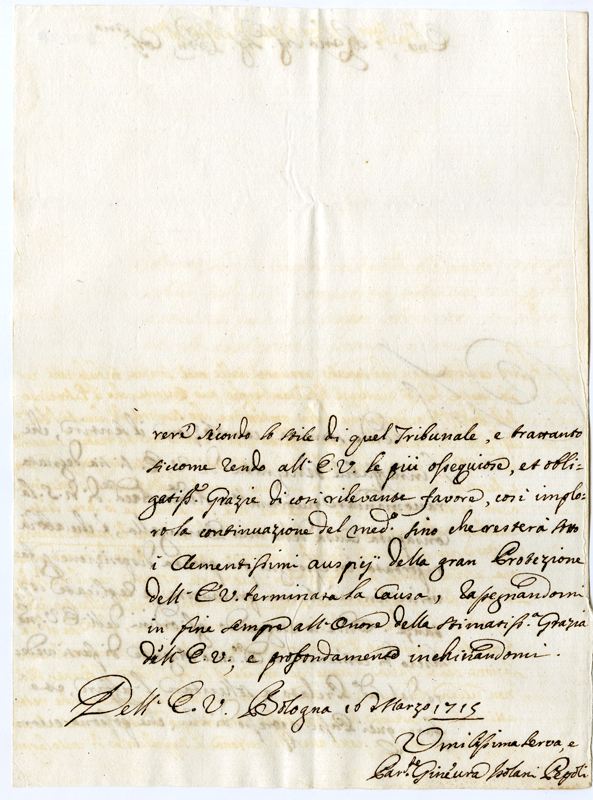 rerà secondo lo stile di quel Tribunale, e trattanto
siccome rendo all' E.V. le più ossequiose, et obli-
gatiss.e Grazie di così rilevante favore, così implo-
ro la continuazione del med.o sino che resterà sotto
i Clementissimi auspicij della gran Protezione
dell' E.V. terminata la Causa, rasegnandomi
in fine sempre all' Onore della stimatiss.a Grazia
dell' E.V., e profondamente inchinandomi.
Dell' E.V. Bologna 16 Marzo 1715
Umilissima serva, e
Par.te Ginevra Isolani Pepoli